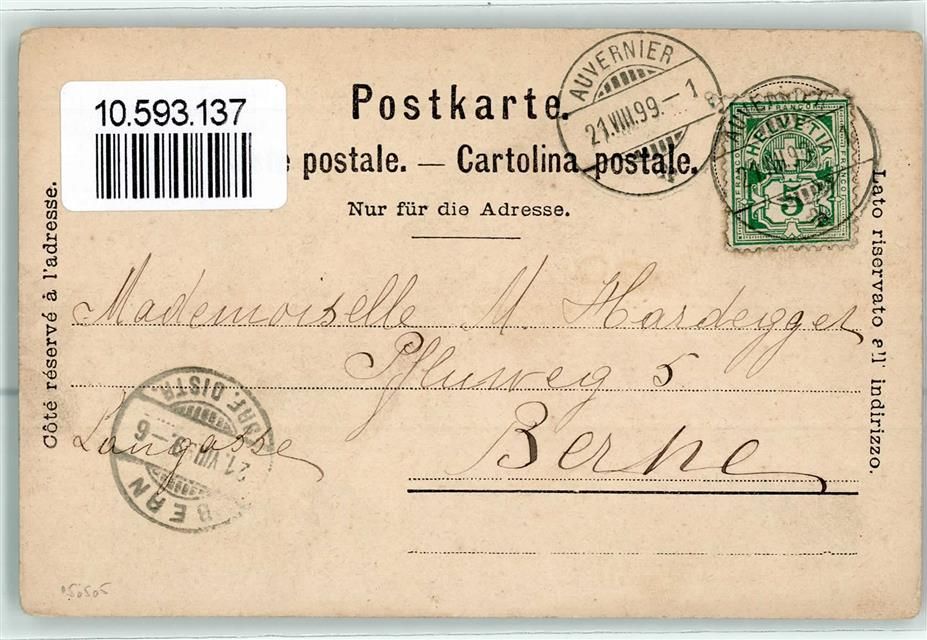 10.593.137
Postkarte.
e postale. — Cartolina postale.
Nur für die Adresse.
Côté réservé à l'adresse.
Lato riservato all' indirizzo.
AUVERNIER
21.VIII.99.-1
AUVERNIER
FRANCO
HELVETIA
5
Mademoiselle M. Hardegger
Pflugweg 5
Langasse
Berne
BERN
21.VIII.99-6
BRF. DISTR.